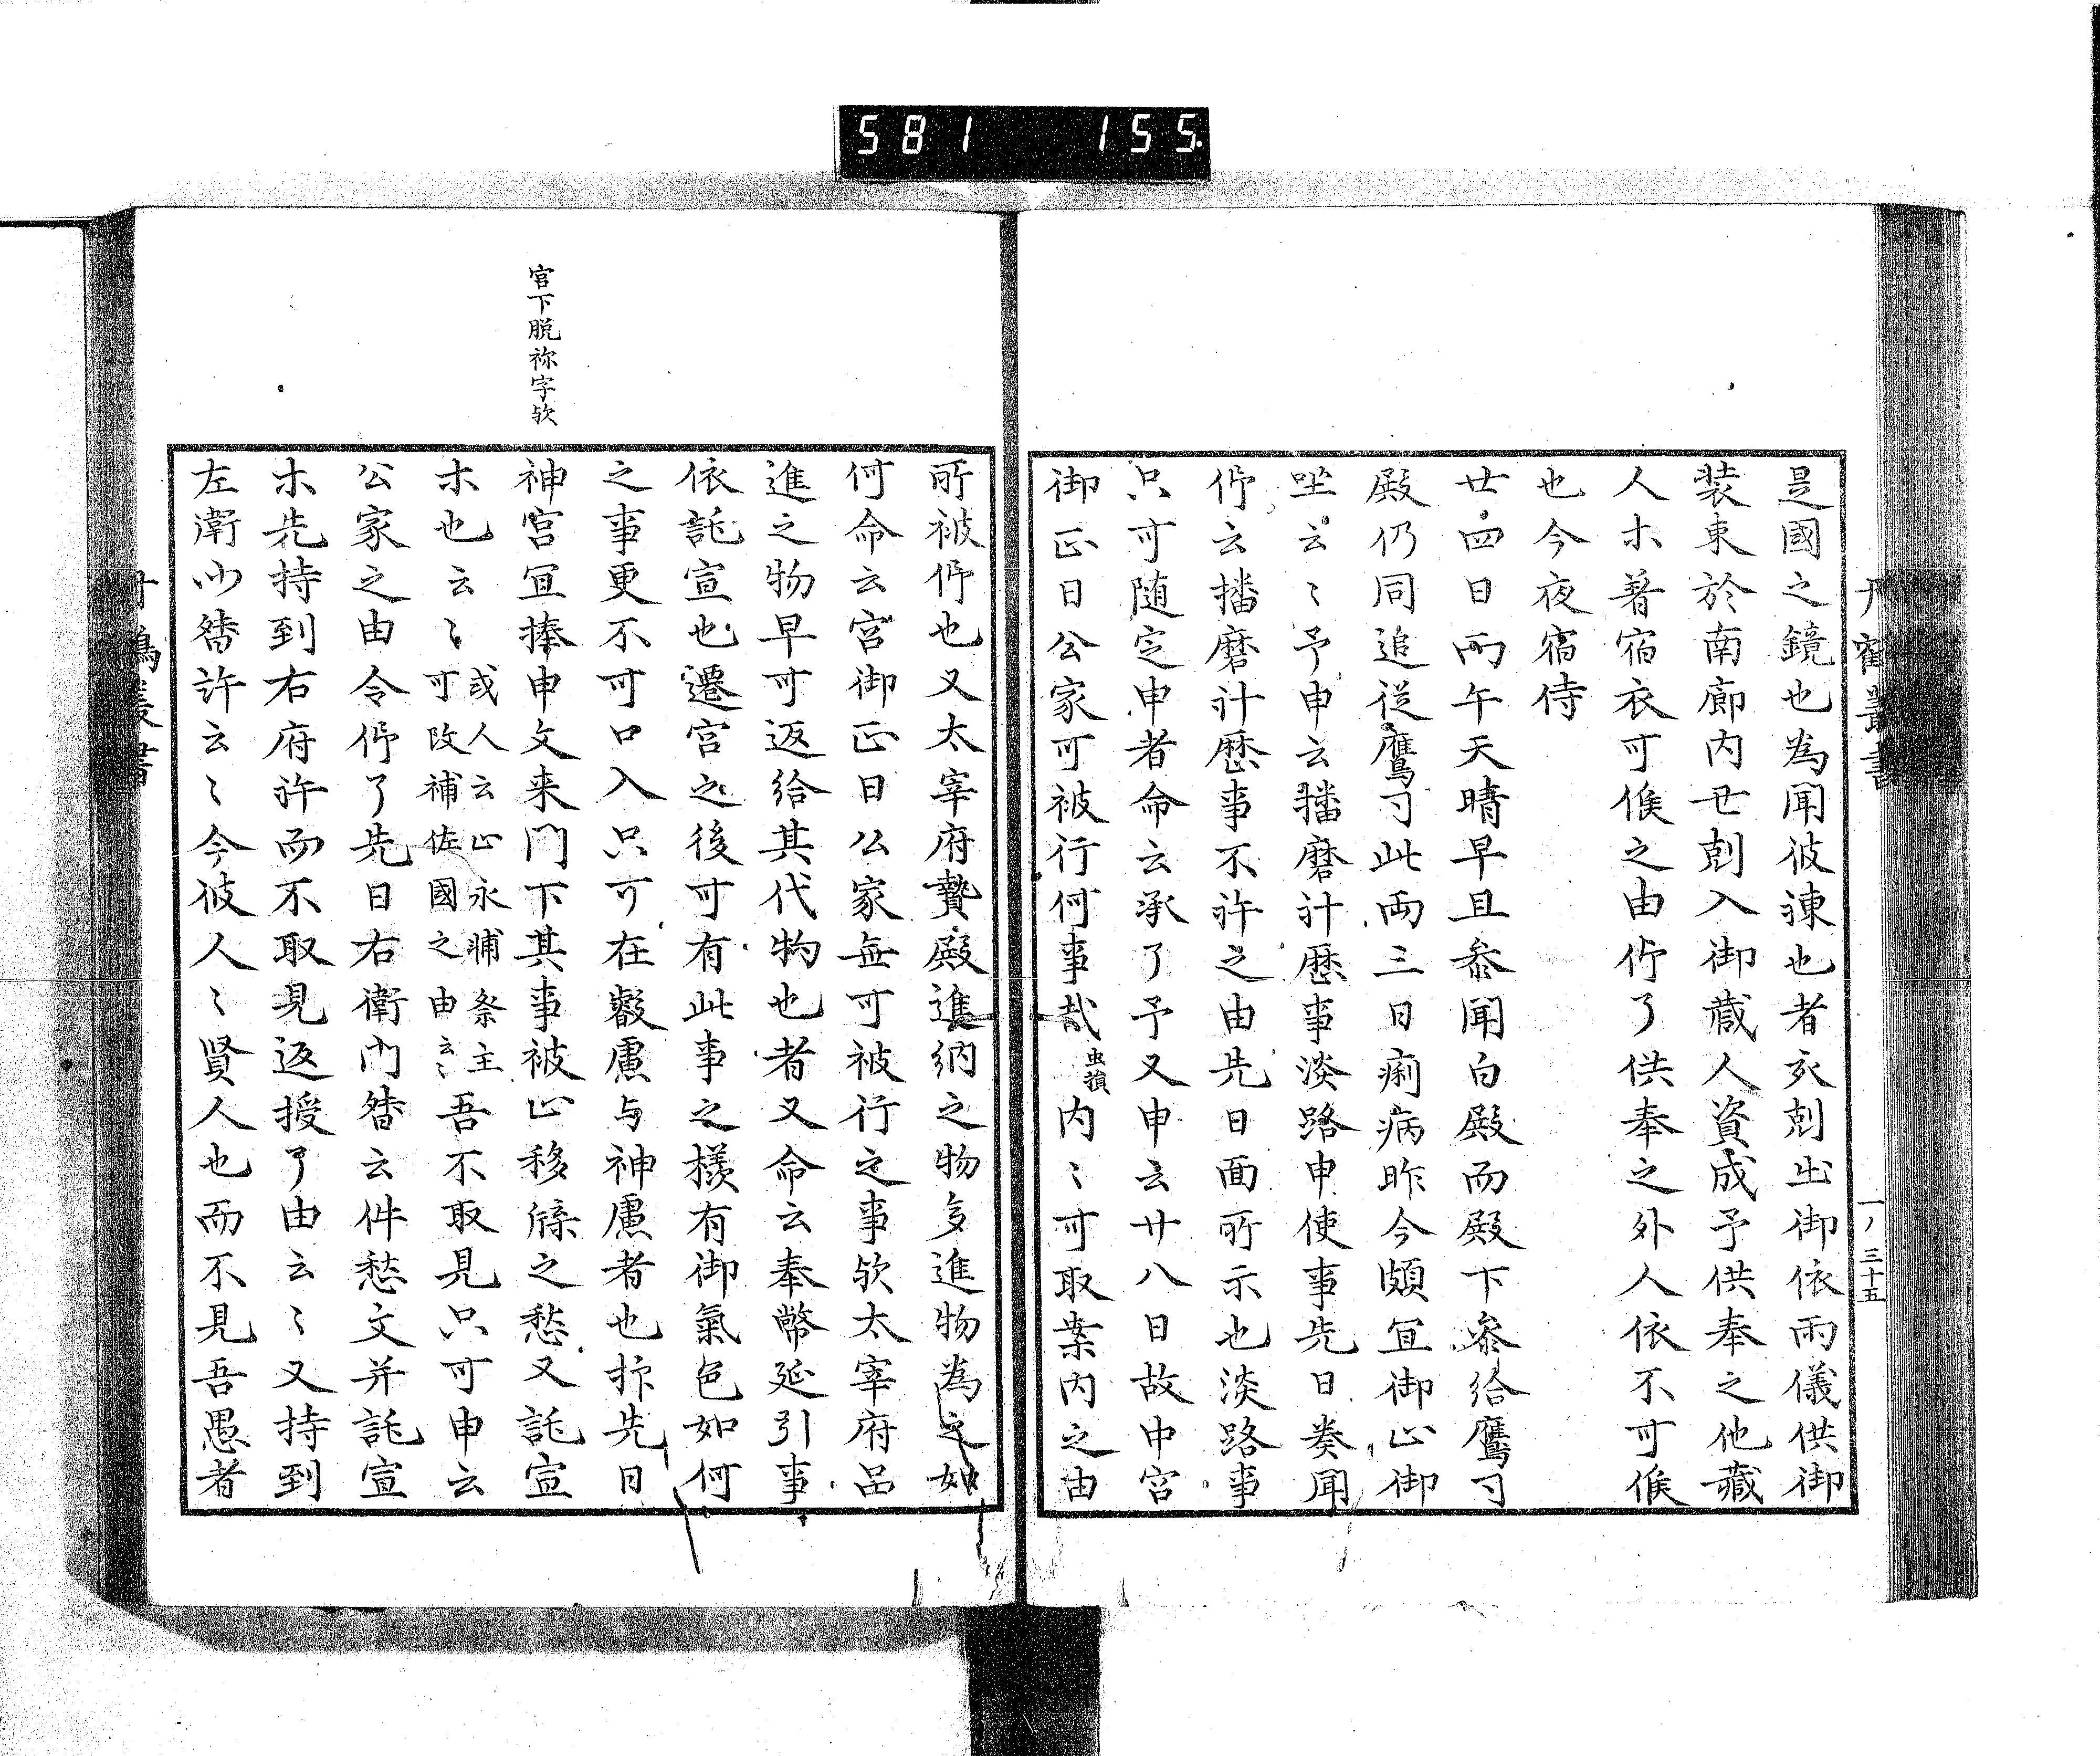 581 155
丹鶴叢書
一ノ三十五
是國之鏡也為聞彼諫也者亥剋出御依雨儀供御
装束於南廊内丑剋入御藏人資成予供奉之他藏
人ホ著宿衣可候之由仰了供奉之外人依不可候
也今夜宿侍
廿四日雨午天晴早旦参関白殿而殿下参給鷹司
殿仍同追從鷹司此両三日痢病昨今頗宜御㱏御
坐云〻予申云播磨計歴事淡路申使事先日奏聞
仰云播磨計歴事不許之由先日面所示也淡路事
只可随定申者命云承了予又申云廿八日故中宮
御正日公家可被行何事哉虫損内〻可取案内之由
所被仰也又太宰府贄殿進納之物多進物為之如
何命云宮御正日公家無可被行之事欤太宰府品
進之物早可返給其代物也者又命云奉幣延引事
依託宣也遷宮之後可有此事之樣有御氣色如何
之事更不可口入只可在叡慮与神慮者也抑先日
神宮宜捧申文来門下其事被止移牒之愁又託宣
ホ也云〻或人云止永輔祭主可改補佐國之由云〻吾不取見只可申云
公家之由令仰了先日右衛門督云件愁文并託宣
ホ先持到右府許而不取見返授了由云〻又持到
左衛門督許云〻今彼人〻賢人也而不見吾愚者
宮下脱祢字欤
丹鶴叢書